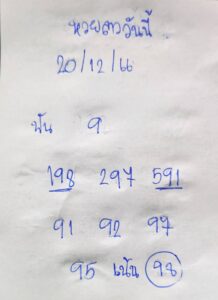 หวยลาววันนี้
20/12/66
ฟัน 9
198 297 591
91 92 97
95 เน้น 98